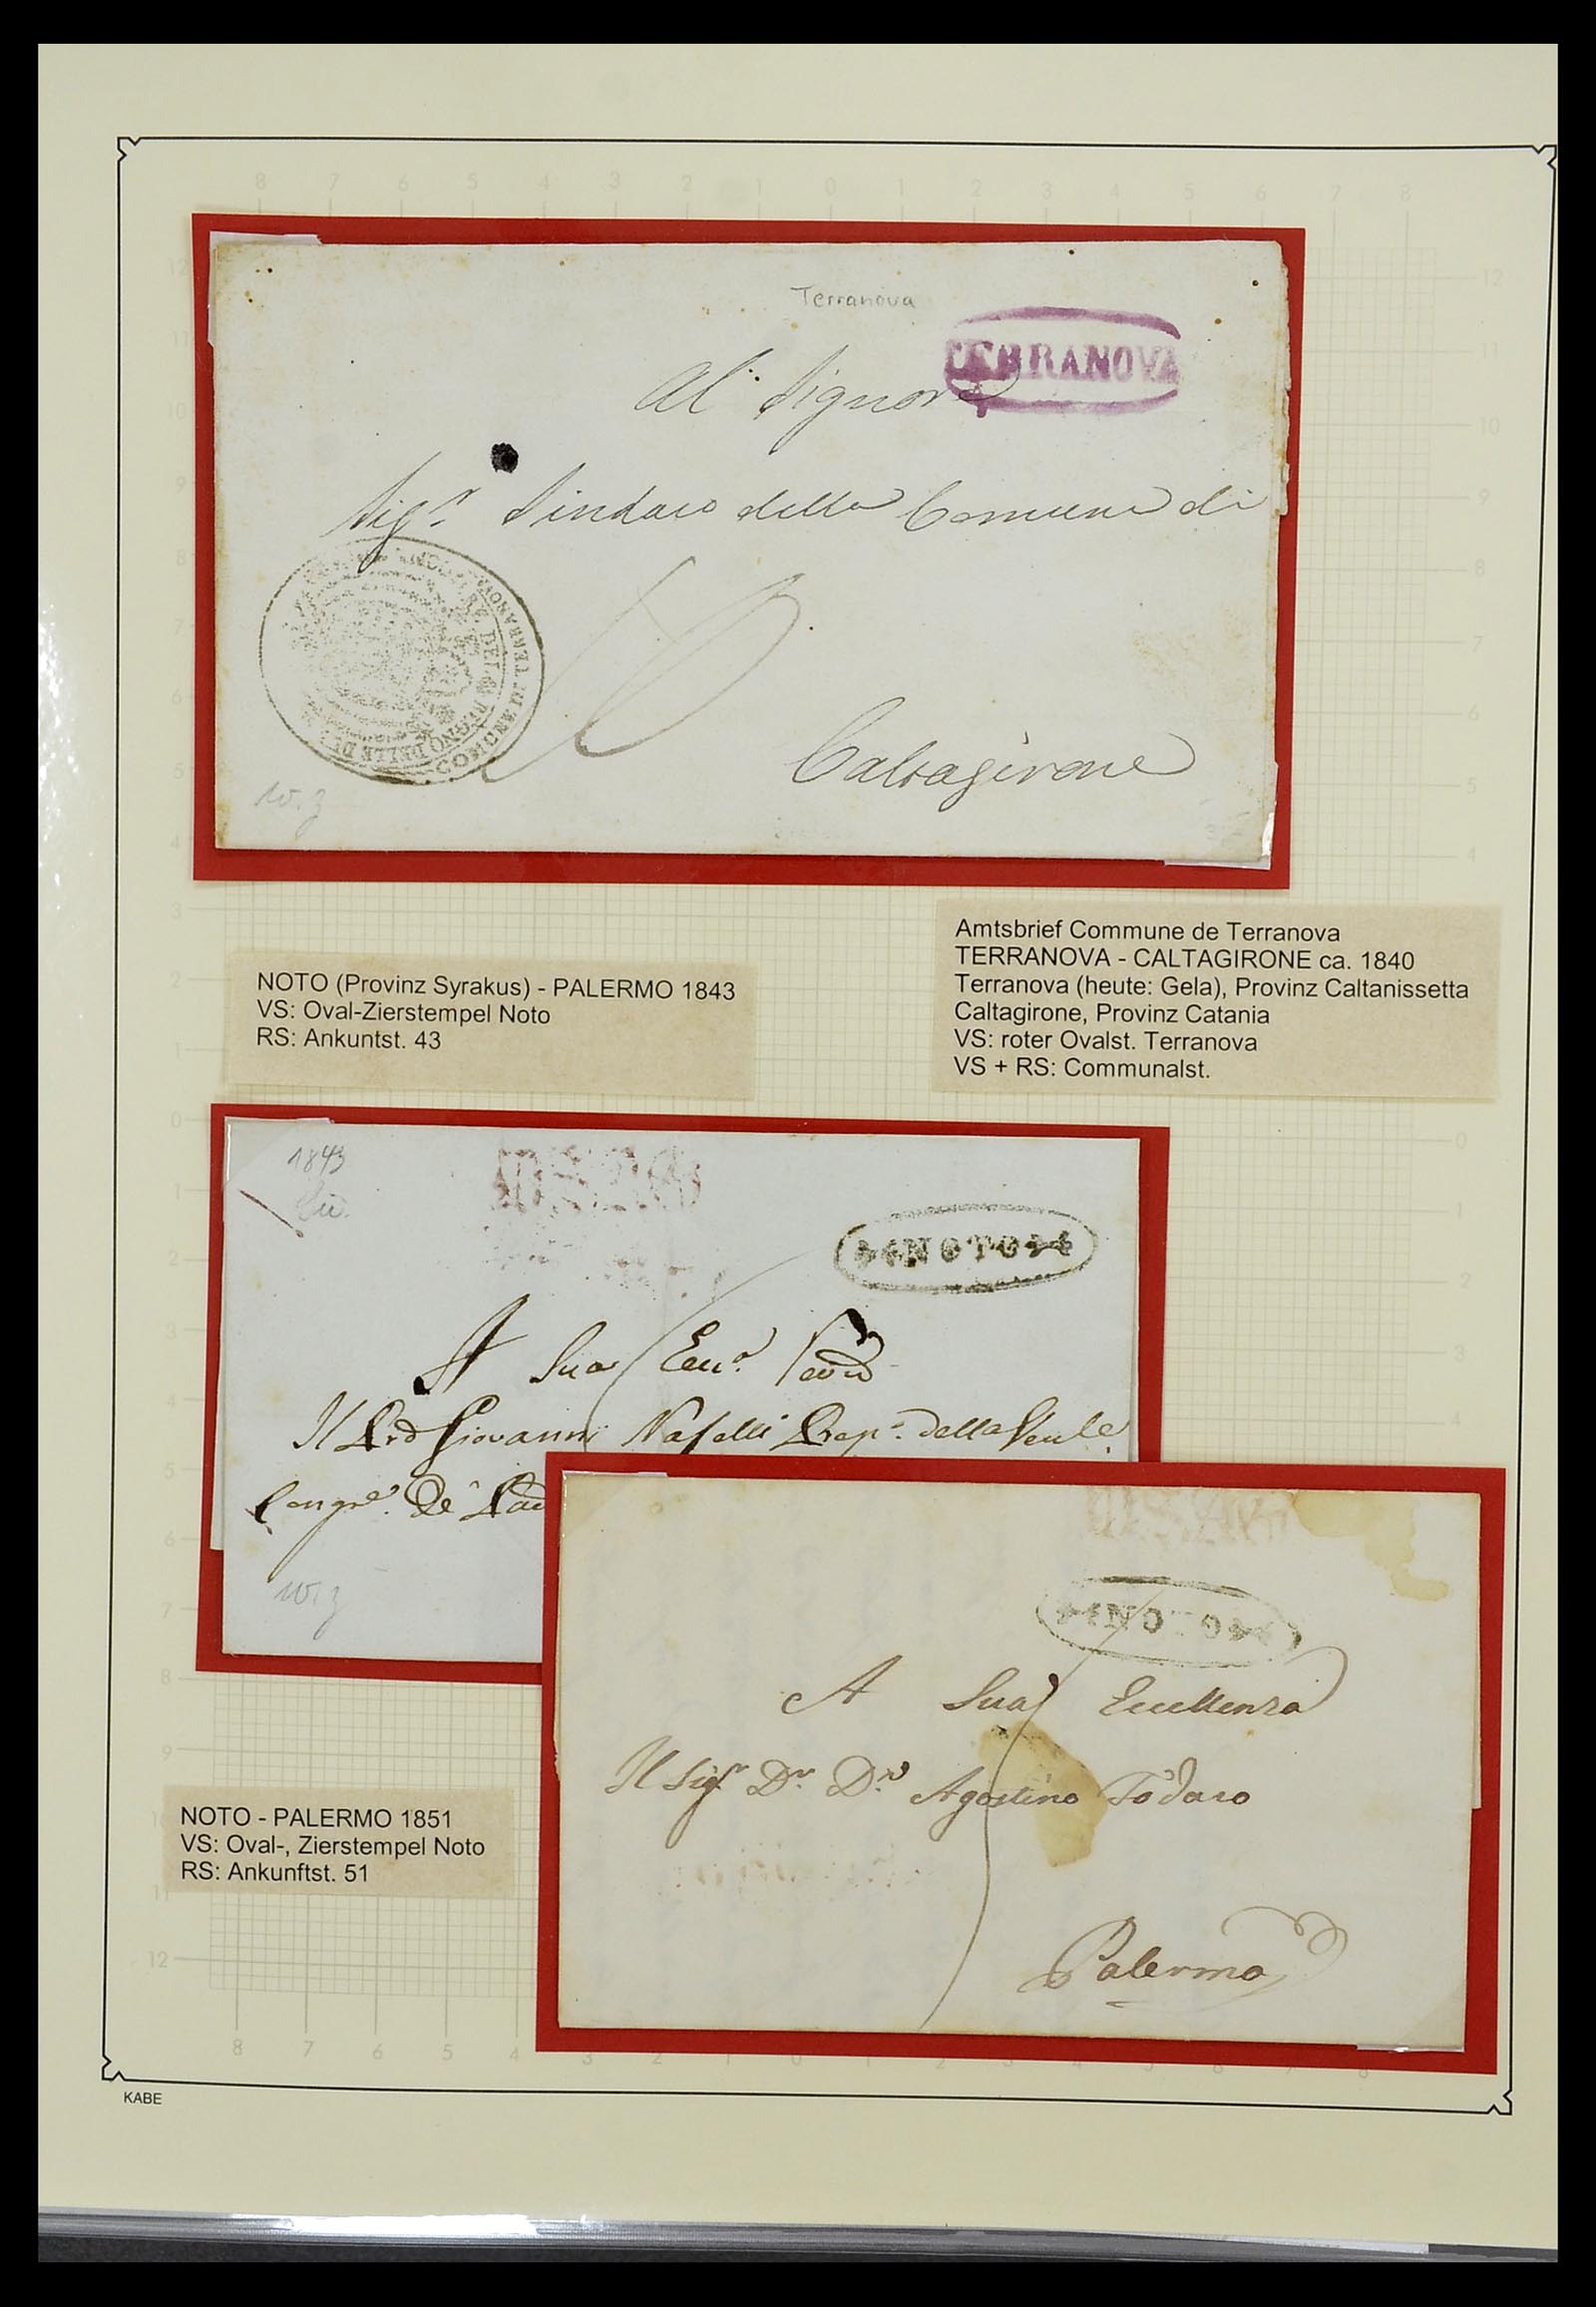 Terranova
TERRANOVA
Al Signore
Sig.r Sindaco della Comune di
Caltagirone
COMUNE DI TERRANOVA
REGNO DELLE
Amtsbrief Commune de Terranova
TERRANOVA - CALTAGIRONE ca. 1840
Terranova (heute: Gela), Provinz Caltanissetta
Caltagirone, Provinz Catania
VS: roter Ovalst. Terranova
VS + RS: Communalst.
NOTO (Provinz Syrakus) - PALERMO 1843
VS: Oval-Zierstempel Noto
RS: Ankuntst. 43
1843
NOTO
A Sua
Il Giovanni Naselli
NOTO - PALERMO 1851
VS: Oval-, Zierstempel Noto
RS: Ankunftst. 51
A Sua Eccellenza
Il Sigr Dr Dn Agostino Todaro
Palermo
KABE